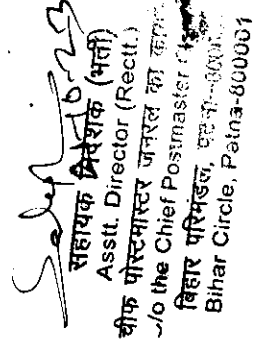 10-23
सहायक निदेशक (भर्ती)
Asstt. Director (Rectt.)
चीफ पोस्टमास्टर जनरल का
o the Chief Postmaster
बिहार परिमंडल,
Bihar Circle, Patna-800001